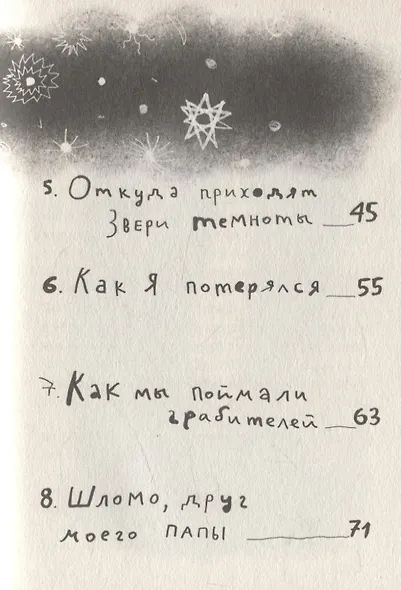 5. Откуда приходят
Звери темноты __45
6. Как Я потерялся __55
7. Как мы поймали
грабителей __63
8. Шломо, друг
моего ПАПЫ ______71